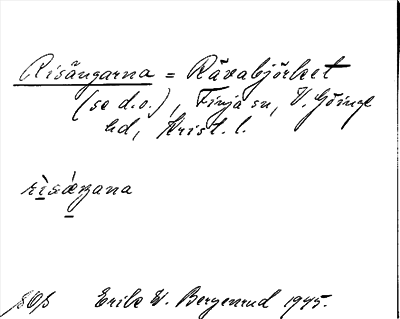 Risängarna = Rävabjörket
(se d.o.), Finja sn, V. Göinge
hd, Krist. l.
Erik W. Bergenrud 1945.